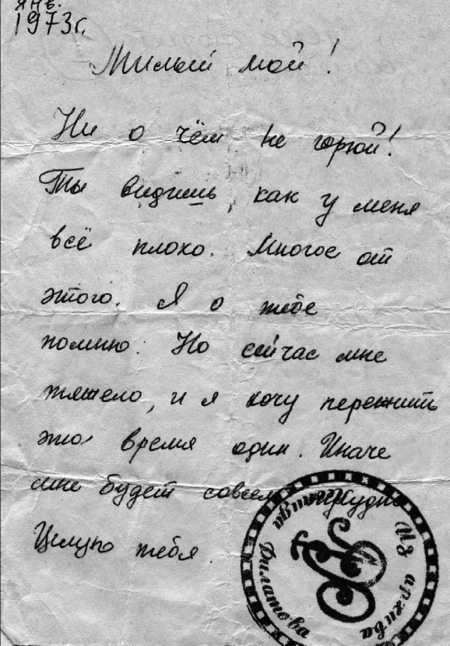 янв.
1973г.
Милый мой!
Ни о чём не горюй!
Ты видишь, как у меня
всё плохо. Многое от
этого. Я о тебе
помню. Но сейчас мне
тяжело, и я хочу пережить
это время один. Иначе
мне будет совсем трудно
Целую тебя.
Из архива Леонида Филатова